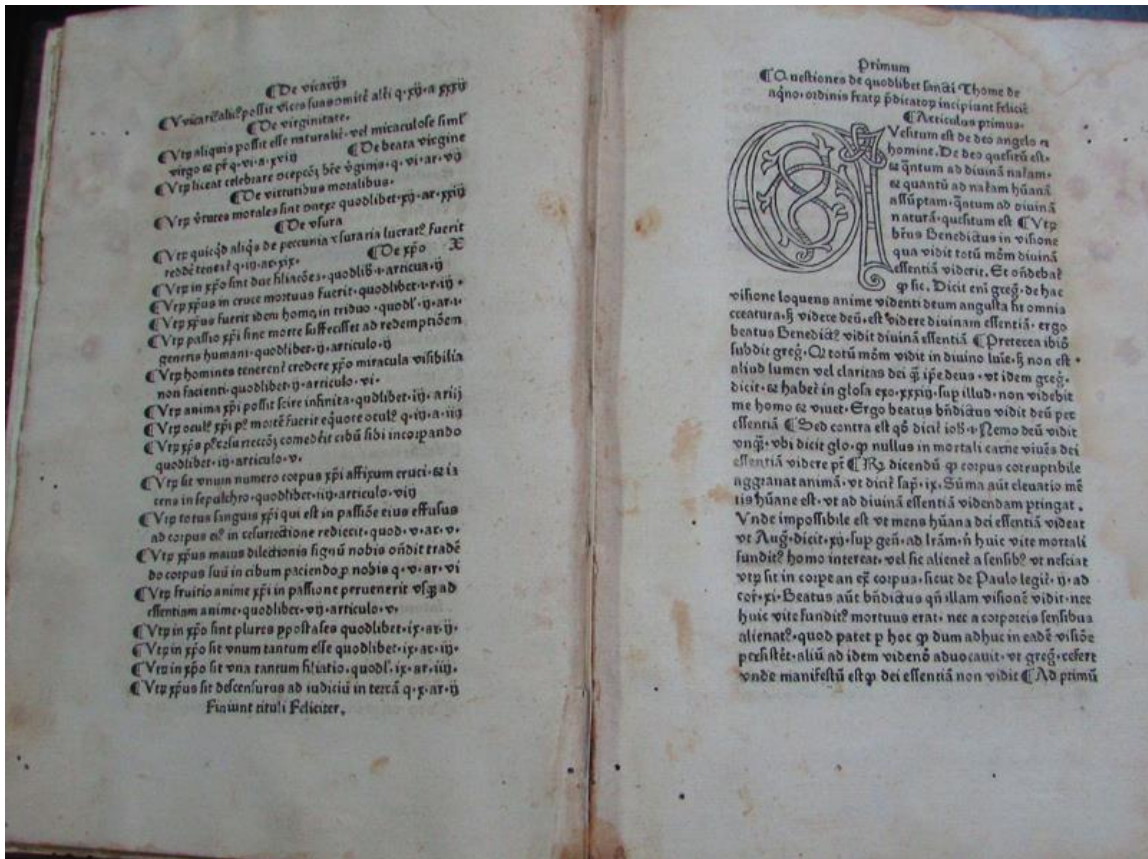 ¶De vicarijs
¶V vicari⁹ ali⁹ possit vices suas omitē alt̄i q·xij·a xxxij
¶De virginitate.
¶Vtꝝ aliquis possit esse naturalit̄·vel miraculose siml̓
virgo & pr̄ q·vi·a·xviij ¶De beata virgine
¶Vtꝝ liceat celebrare ɔcepcōꝫ btē v̄ginis·q·vi·ar·vij
¶De virtutibus moralibus.
¶Vtꝝ v̓tutes morales sint ɔnexe quodlibet·xij·ar·xxiij
¶De vsura
¶Vtꝝ quicq̄d aliq̄s de peccunia vsuraria lucrat⁹ fuerit
reddē teneat̄ q·iij·ar·xix· ¶De xp̄o
¶Vtꝝ in xp̄o sint due filiacōes·quodlib⁹·i·articua·ij
¶Vtꝝ xp̄us in cruce mortuus fuerit·quodlibet·i·r·ij·
¶Vtꝝ xp̄us fuerit idem homo in triduo·quodl̓·ij·ar·i·
¶Vtꝝ passio xp̄i sine morte suffecisset ad redemptōem
generis humani·quodlibet·ij·articulo·ij·
¶Vtꝝ homines tenerent̄ credere xp̄o miracula visibilia
non facienti·quodlibet·ij·arriculo·vi·
¶Vtꝝ anima xp̄i possit scire infinita·qudlibet·iij·ar iij
¶Vtꝝ ocul⁹ xp̄i p⁹ mortē fuerit eq̄uoce ocul⁹ q·iij·a·iiij
¶Vtꝝ xp̄s p⁹ resurrectōꝫ comederit cibū sibi incorpando
quodlibet·iij·articulo·v·
¶Vtꝝ sit vnum numero corpus xp̄i affixum cruci·& ia
cens in sepulchro·quodlibet·iiij·articulo·viij
¶Vtꝝ totus sanguis xp̄i qui est in passiōe eius effusus
ad corpus ei⁹ in resurrectione redierit·quod·v·ar·v·
¶Vtꝝ xp̄us maius dilectionis signū nobis oñdit tradē
do corpus suū in cibum paciendo ꝓ nobis q·v·ar·vi
¶Vtꝝ fruitio anime xp̄i in passione peruenerit vsqꝫ ad
essentiam anime·quodlibet·vij·articulo·v·
¶Vtꝝ in xp̄o sint plures ypostases quodlibet·ix·ar·ij·
¶Vtꝝ in xp̄o sit vnum tantum esse quodlibet·ix·ar·iij·
¶Vtꝝ in xp̄o sit vna tantum filiatio·quodl̓·ix·ar·iiij·
¶Vtꝝ xp̄us sit descensurus ad iudiciū in terrā q·x·ar·ij
Finiunt tituli Feliciter.
Primum
¶Questiones de quodlibet sancti Thome de
aqno·ordinis fratꝝ p̄dicatoꝝ incipiunt felicit̄
¶Articulus primus·
QVesitum est de deo angelo &
homine·De deo quesitū est·
& q̄ntum ad diuinā natam·
& quantū ad natam hūanā
assūptam·q̄ntum ad diuinā
naturā·quesitum est ¶Vtꝝ
btūs Benedictus in visione
qua vidit totū mōm diuinā
essentiā viderit·Et oñdebat̄
ꝙ sic·Dicit eni greg̓·de hac
visione loquens anime videnti deum angusta fit omnis
creatura·sꝫ videre deū·est videre diuinam essentiā·ergo
beatus Benedict⁹ vidit diuinā essentiā ¶Preterea ibiō
subdit greg̓·Qꝫ totū mōm vidit in diuino lūie·sꝫ non est
aliud lumen vel claritas dei qꝫ ip̄e deus·vt idem greg̓·
dicit·& habet̄ in glosa exo·xxxiij·sup illud·non videbit
me homo & viuet·Ergo beatus bñdictus vidit deū per
essentiā ¶Sed contra est qđ dicit̄ ioħ·i·Nemo deū vidit
vnqꝫ·vbi dicit glo·ꝙ nullus in mortali carne viuēs dei
essentiā videre pt̄ ¶Rꝫ dicendū ꝙ corpus corruptibile
aggrauat animā·vt dicit̄ sap̄·ix·Sūma aūt eleuatio mē
tis hūane est·vt ad diuinā essentiā videndam ptingat·
Vnde impossibile est vt mens hūana dei essentiā videat
vt Aug̓·dicit·xij·sup gen̄·ad lr̄am·ñ huic vite mortali
fundit⁹ homo intereat·vel sic alienet̄ a sensib⁹ vt nesciat
vtꝝ sit in corpe an ext̄ corpus·sicut de Paulo legit̄·ij·ad
cor̓·xi·Beatus aūt bñdictus qñ illam visionē vidit·nec
huic vite fundit⁹ mortuus erat·nec a corporeis sensibus
alienat⁹·quod patet p hoc ꝙ dum adhuc in eadē visiōe
persistēt·aliū ad idem videnđ aduocauit·vt greg̓·refert
vnde manifestū est ꝙ dei essentiā non vidit ¶Ad primū